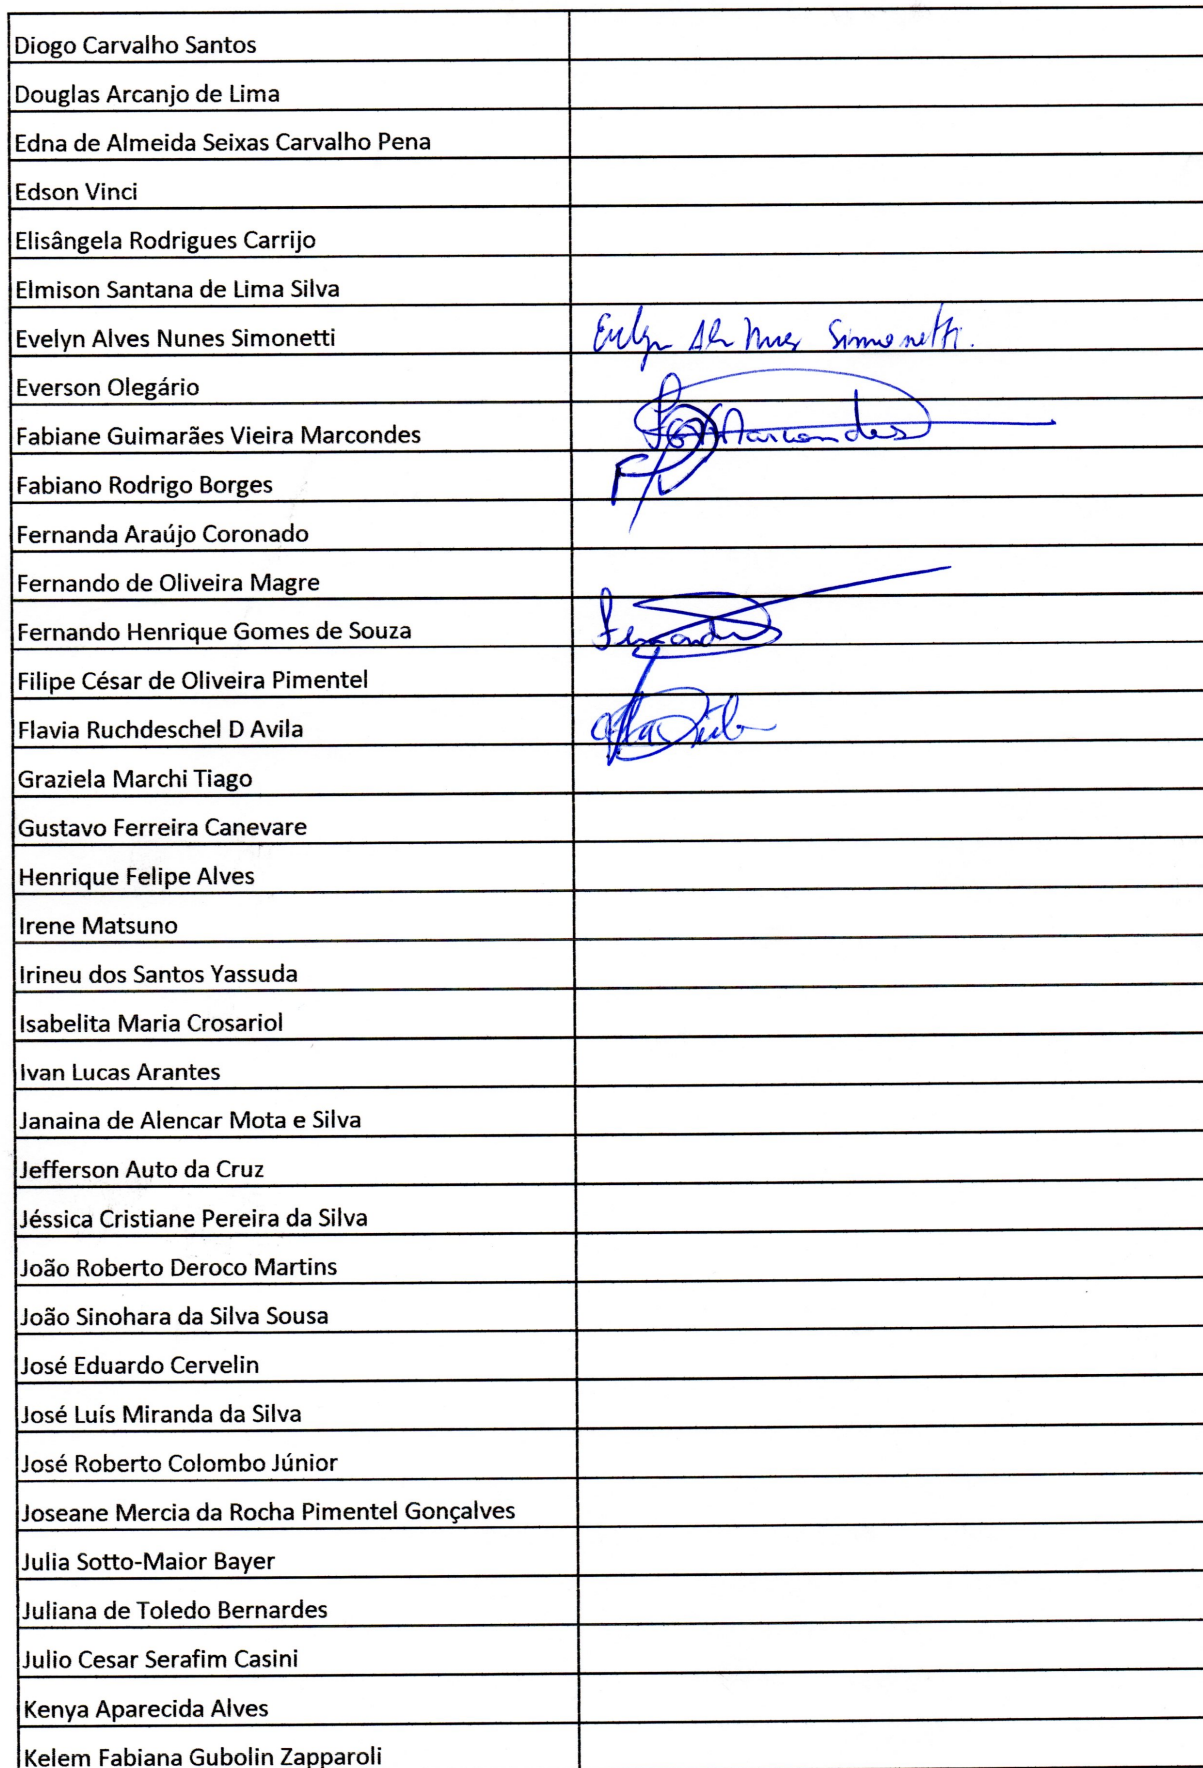 Diogo Carvalho Santos
Douglas Arcanjo de Lima
Edna de Almeida Seixas Carvalho Pena
Edson Vinci
Elisângela Rodrigues Carrijo
Elmison Santana de Lima Silva
Evelyn Alves Nunes Simonetti Evelyn Simonetti.
Everson Olegário
Fabiane Guimarães Vieira Marcondes Marcondes
Fabiano Rodrigo Borges
Fernanda Araújo Coronado
Fernando de Oliveira Magre
Fernando Henrique Gomes de Souza
Filipe César de Oliveira Pimentel
Flavia Ruchdeschel D Avila
Graziela Marchi Tiago
Gustavo Ferreira Canevare
Henrique Felipe Alves
Irene Matsuno
Irineu dos Santos Yassuda
Isabelita Maria Crosariol
Ivan Lucas Arantes
Janaina de Alencar Mota e Silva
Jefferson Auto da Cruz
Jéssica Cristiane Pereira da Silva
João Roberto Deroco Martins
João Sinohara da Silva Sousa
José Eduardo Cervelin
José Luís Miranda da Silva
José Roberto Colombo Júnior
Joseane Mercia da Rocha Pimentel Gonçalves
Julia Sotto-Maior Bayer
Juliana de Toledo Bernardes
Julio Cesar Serafim Casini
Kenya Aparecida Alves
Kelem Fabiana Gubolin Zapparoli